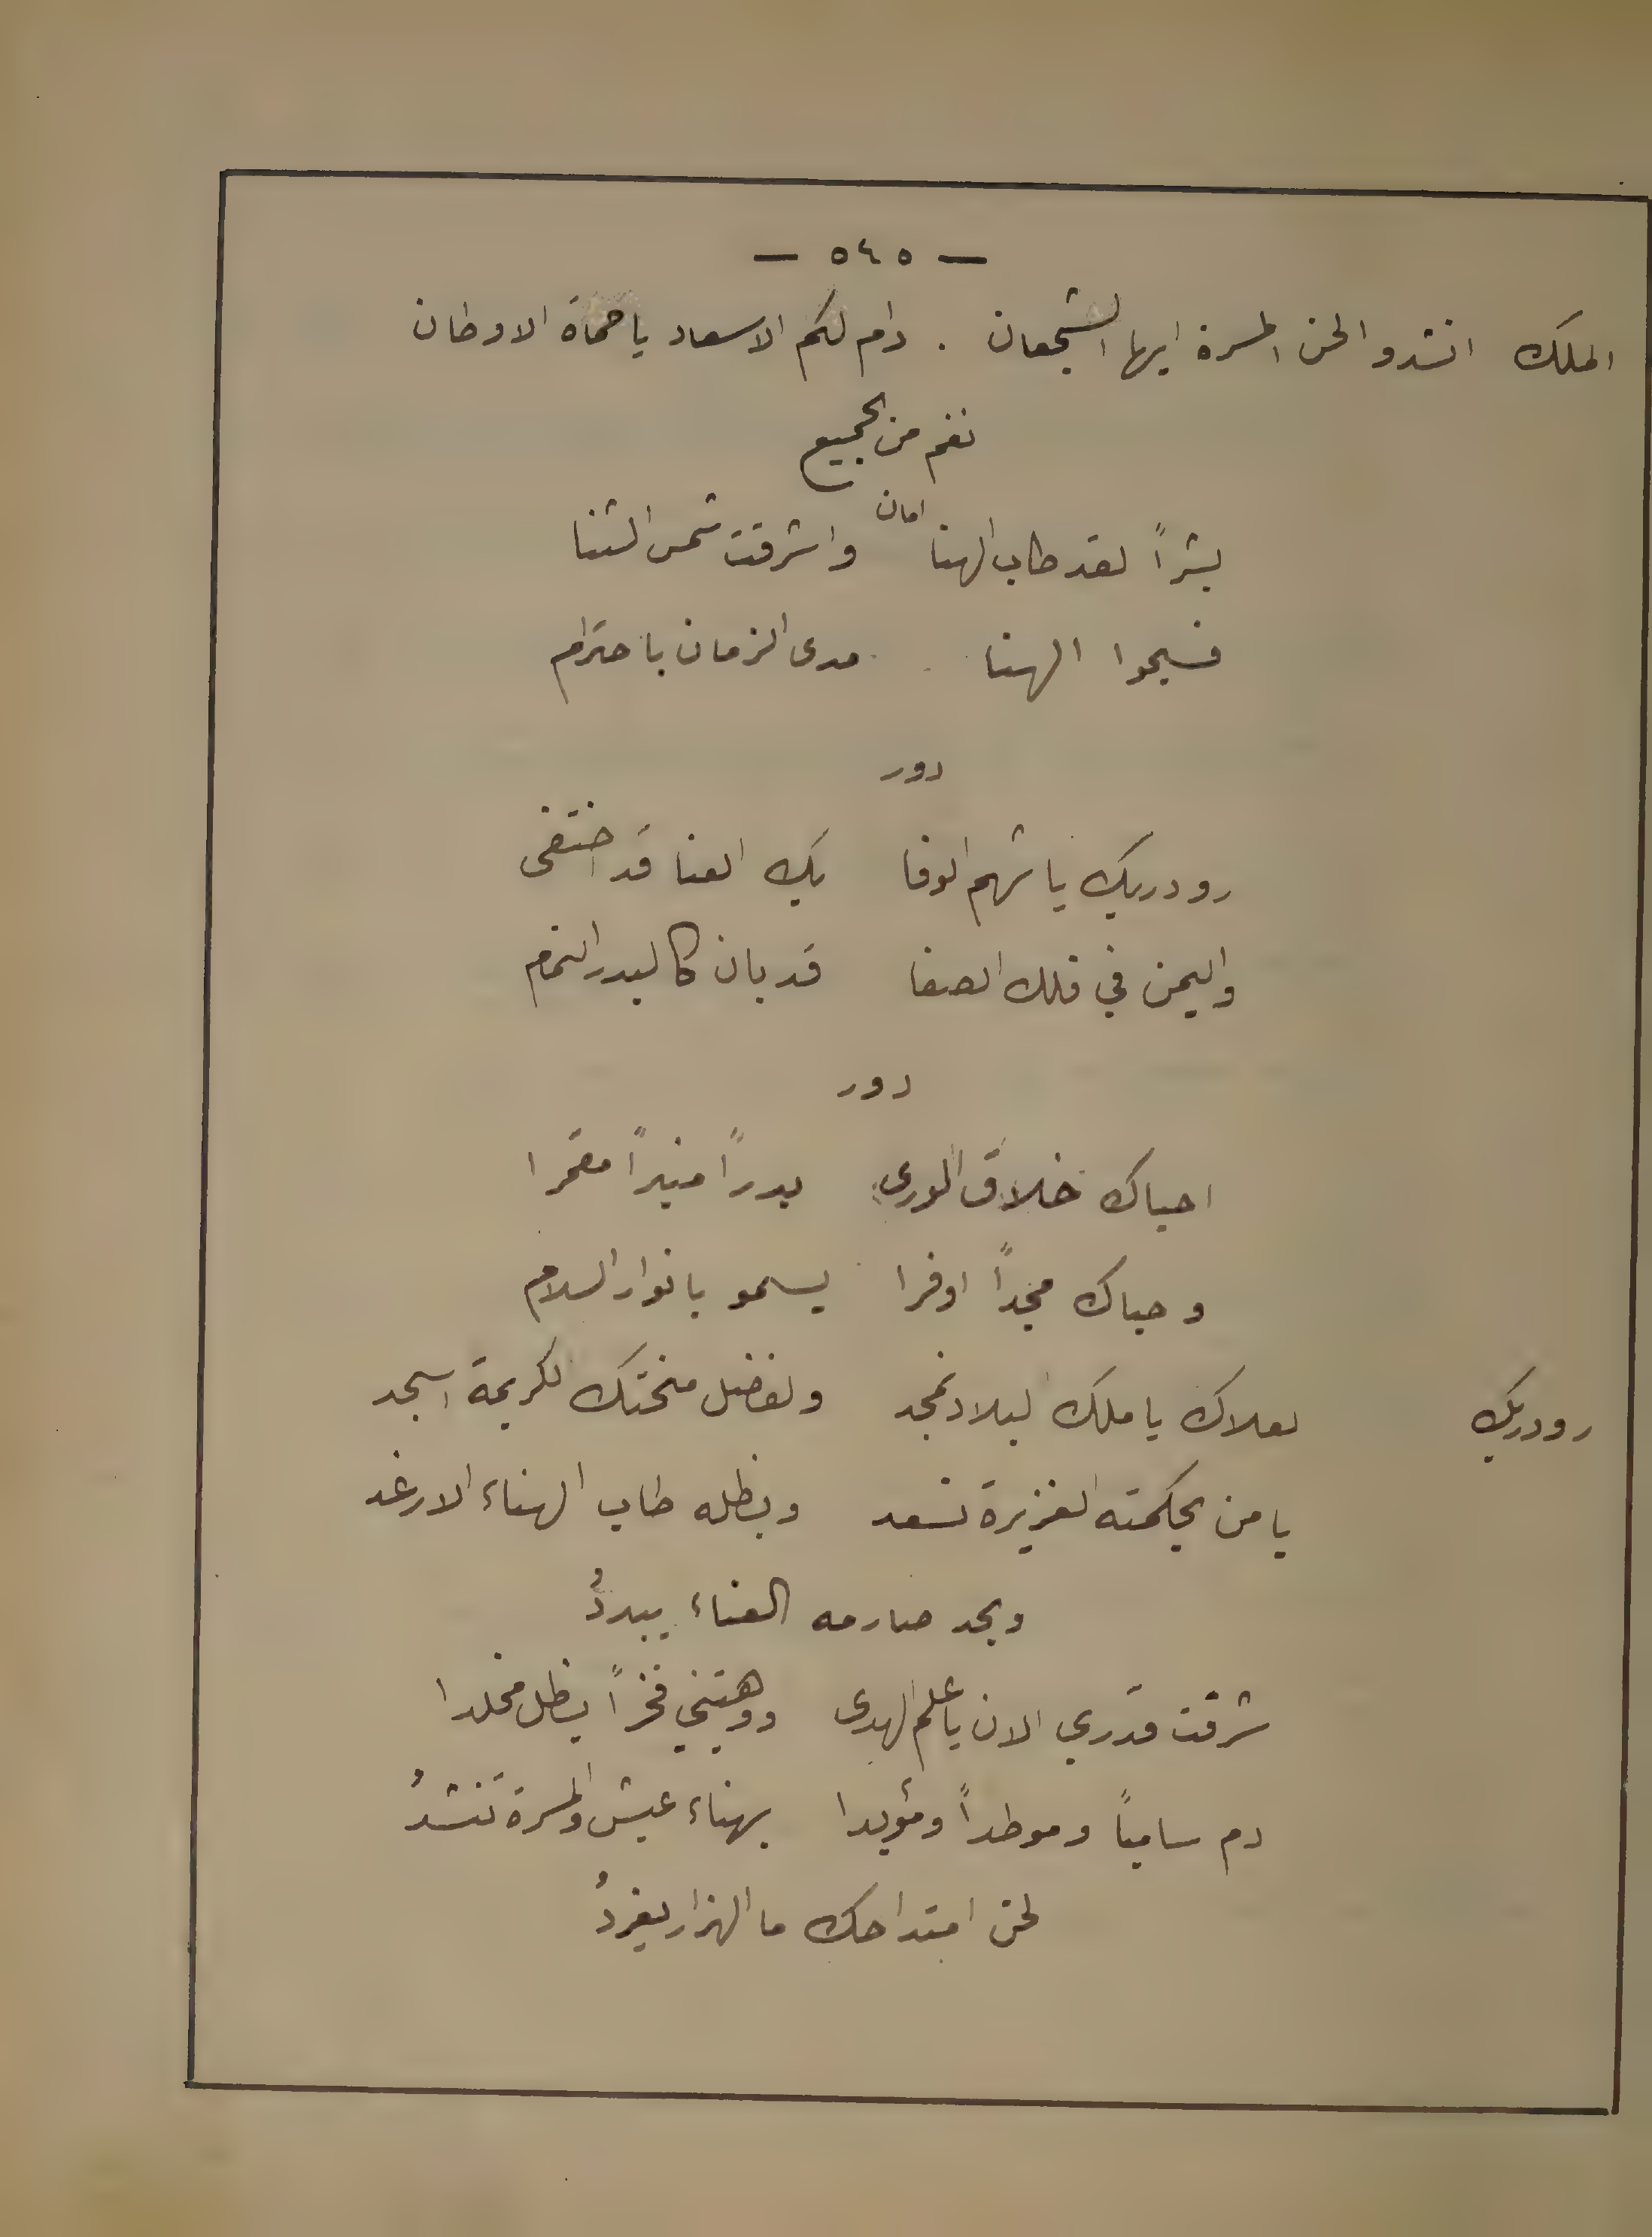 — ٥٤٥ —
الملك انشدوا لحن المسرة ايها الشجعان . دام لكم الاسعاد يا حماة الاوطان
نغم من الجميع
بشراً لقد طاب الهنا امان واشرقت شمس الثنا
فسبحوا الهنا مدى الزمان باحترام
دور
رودريك يا شهم الوفا بك العنا قد اختفى
واليمن في فلك الصفا قد بان كالبدر التمام
دور
احياك خلاق الورى بدراً منيراً مقمرا
وحباك مجداً اوفرا يسمو بانوار السلام
رودريك لعلاك يا ملك البلاد نمجد ولفضل منحتك الكريمة اسجد
يا من بحكمته الغزيرة نسعد وبظله طاب الهناء الارغد
وبحد صارمه العناء يبددُ
شرفت قدري الان يا علم الهدى ووهبتني فخراً يظل مخلدا
دم سامياً وموطداً ومؤيدا بهناء عيش والمسرة تنشدُ
لحن امتداحك ما الهزار يغردُ